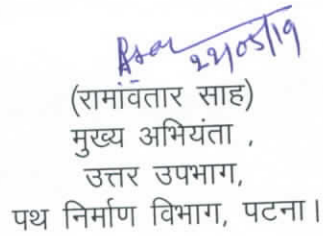 22/05/19
(रामावतार साह)
मुख्य अभियंता ,
उत्तर उपभाग,
पथ निर्माण विभाग, पटना।